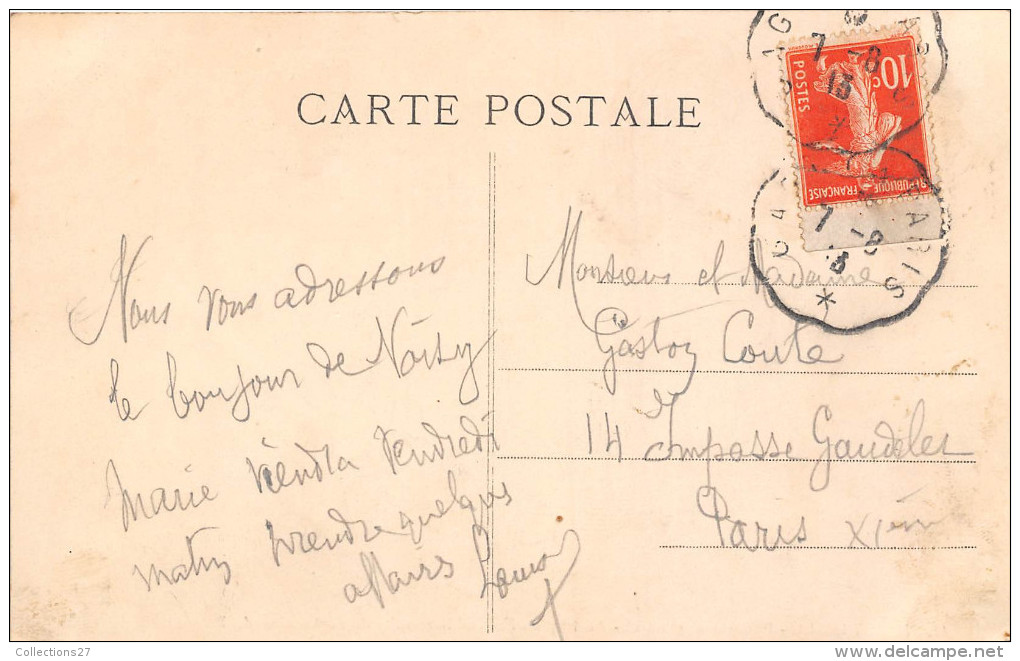 CARTE POSTALE
10c
POSTES
REPUBLIQUE FRANÇAISE
7 -8
13
PARIS
7 -8
Nous vous adressons
le bonjour de Noisy
Marie viendra vendredi
matin prendre quelques
affaires
Monsieur et Madame
Gaston Coute
14 Impasse Gaudelet
Paris XIème
Collections27